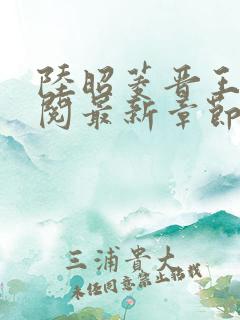 陸昭菱晋王
閱最新章節
三浦貴大
未经同意禁止转载